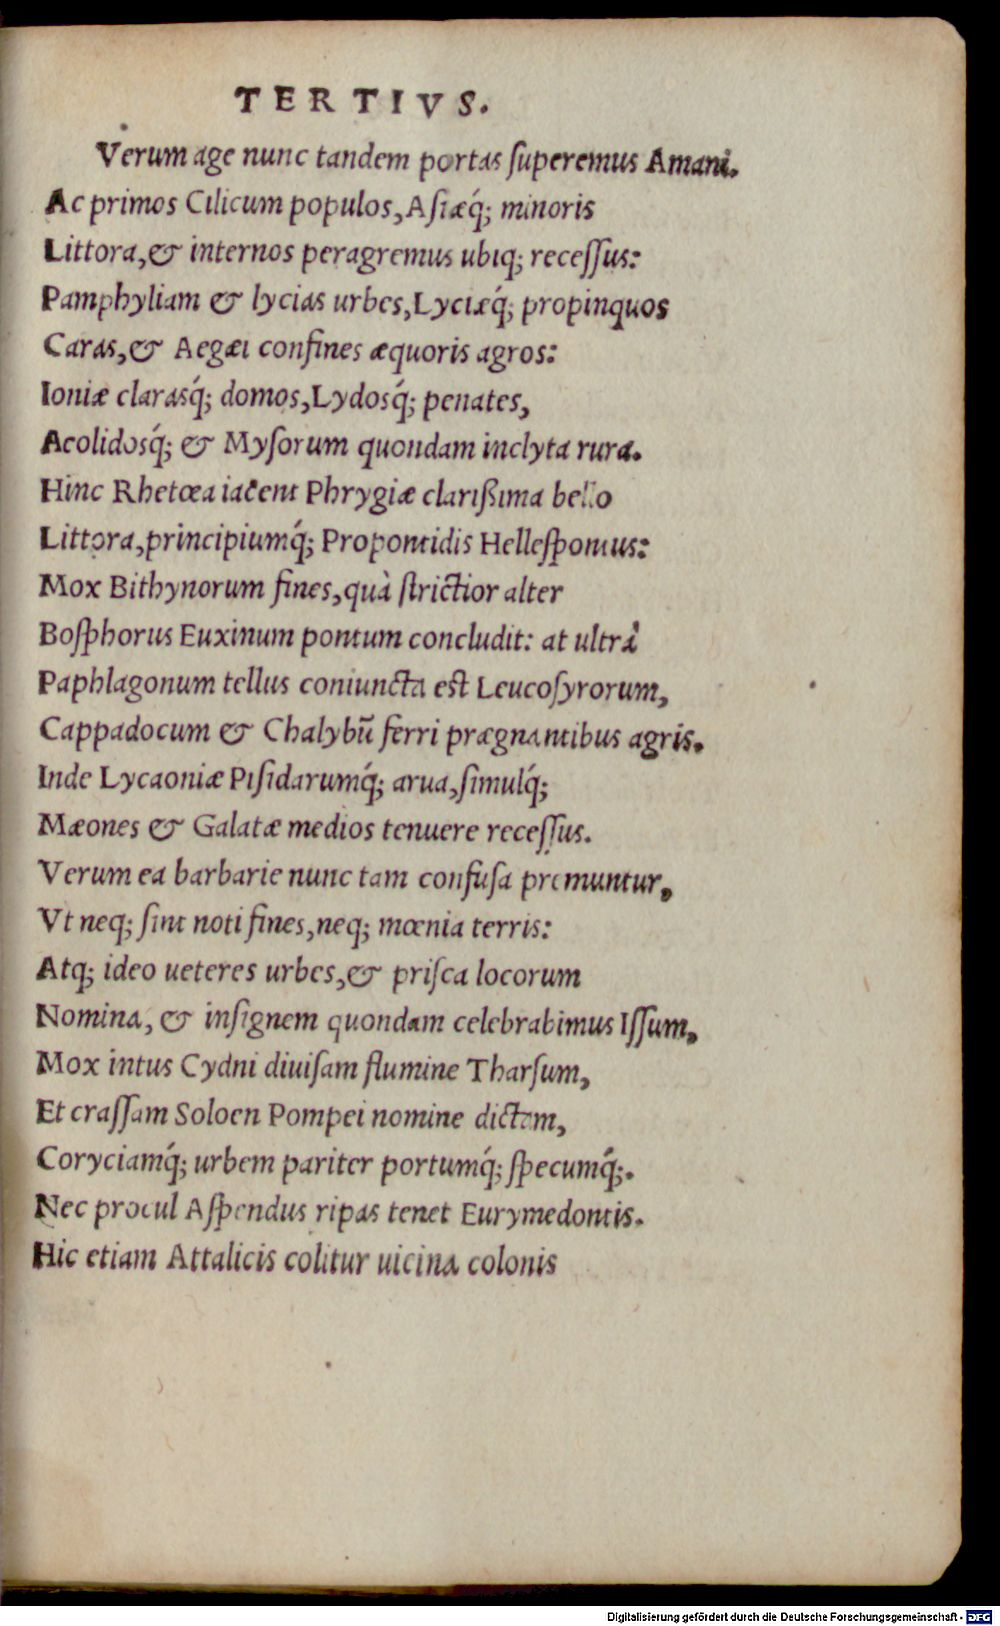 TERTIVS.
Verum age nunc tandem portas ſuperemus Amani.
Ac primos Cilicum populos,Aſiæq́; minoris
Littora,& internos peragremus ubiq; receſſus:
Pamphyliam & lycias urbes,Lyciæq́; propinquos
Caras,& Aegæi confines æquoris agros:
Ioniæ clarasq́; domos,Lydosq́; penates,
Acolidosq́; & Myſorum quondam inclyta rura.
Hinc Rhetœa iacent Phrygiæ clarißima bello
Littora,principiumq́; Propontidis Helleſpontus:
Mox Bithynorum fines,quà ſtrictior alter
Boſphorus Euxinum pontum concludit: at ultrà
Paphlagonum tellus coniuncta est Leucoſyrorum,
Cappadocum & Chalybũ ferri prægnantibus agris.
Inde Lycaoniæ Piſidarumq́; arua,ſimulq́;
Mæones & Galatæ medios tenuere receſſus.
Verum ea barbarie nunc tam confuſa premuntur,
Vt neq; ſint noti fines,neq; mœnia terris:
Atq; ideo ueteres urbes,& priſca locorum
Nomina, & inſignem quondam celebrabimus Iſſum,
Mox intus Cydni diuiſam flumine Tharſum,
Et craſſam Soloen Pompei nomine dictam,
Coryciamq́; urbem pariter portumq́; ſpecumq́;.
Nec procul Aſpendus ripas tenet Eurymedontis.
Hic etiam Attalicis colitur uicina colonis
Digitalisierung gefördert durch die Deutsche Forschungsgemeinschaft - DFG